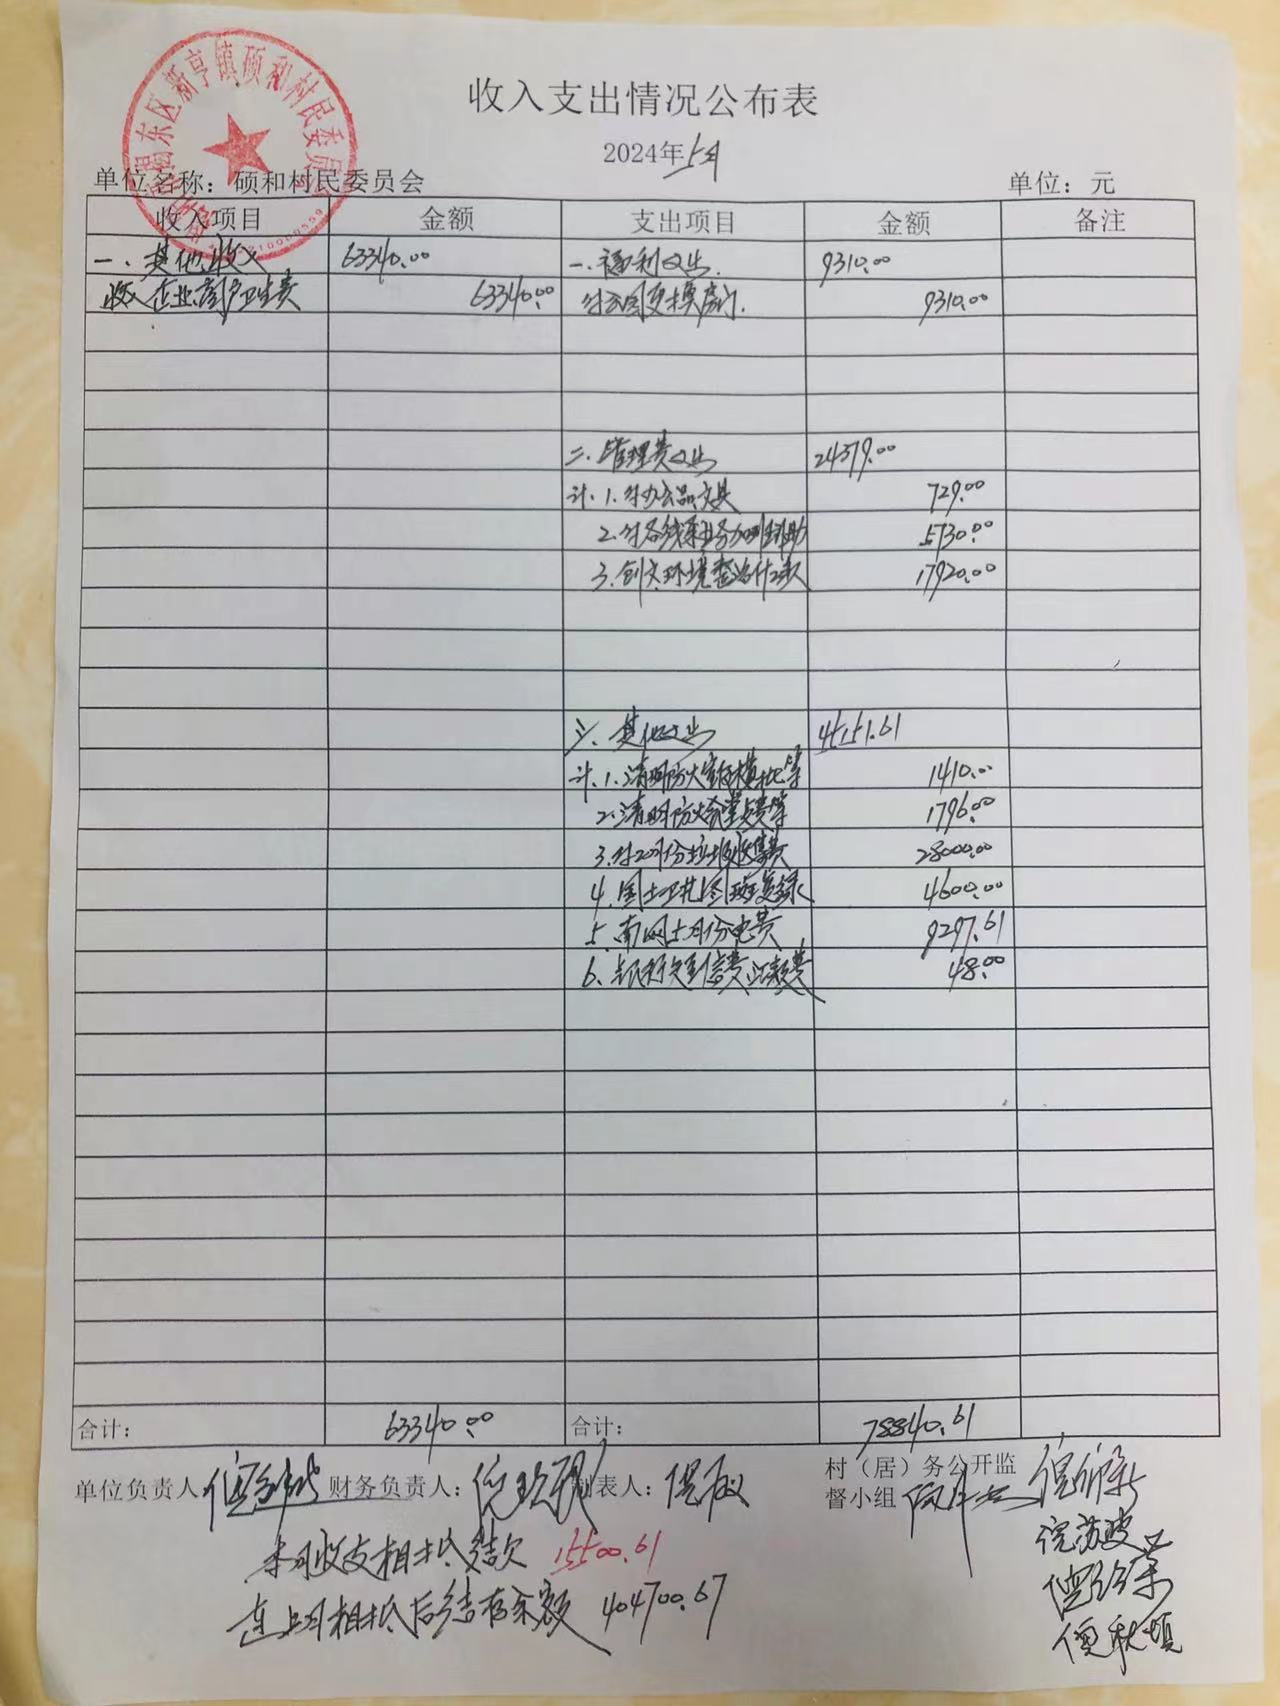 收入支出情况公布表
2024年5月
揭东区新亨镇硕和村民委员会
单位名称：硕和村民委员会 单位：元
收入项目 金额 支出项目 金额 备注
一、其他收入 63340.00 一、福利支出 9310.00
收入企业商户卫生费 63340.00 付公园更换房门 9310.00
二、管理费支出 24379.00
计.1.付办公品文具 729.00
2.付各线条业务加班补助 5730.00
3.创文环境整治 17920.00
六、其他支出 45151.61
计.1.清明防火 等 1410.00
2.清明防火 费等 1796.00
3.付 月份垃圾收集费 28000.00
4.国土卫片图斑复绿 4600.00
5.南网 月份电费 9297.61
6. 短信费 费 48.00
合计： 63340.00 合计： 78840.61
单位负责人 财务负责人： 制表人： 村（居）务公开监
督小组
本月收支相抵结欠 15500.61
连上月相抵后结存余额 404700.67